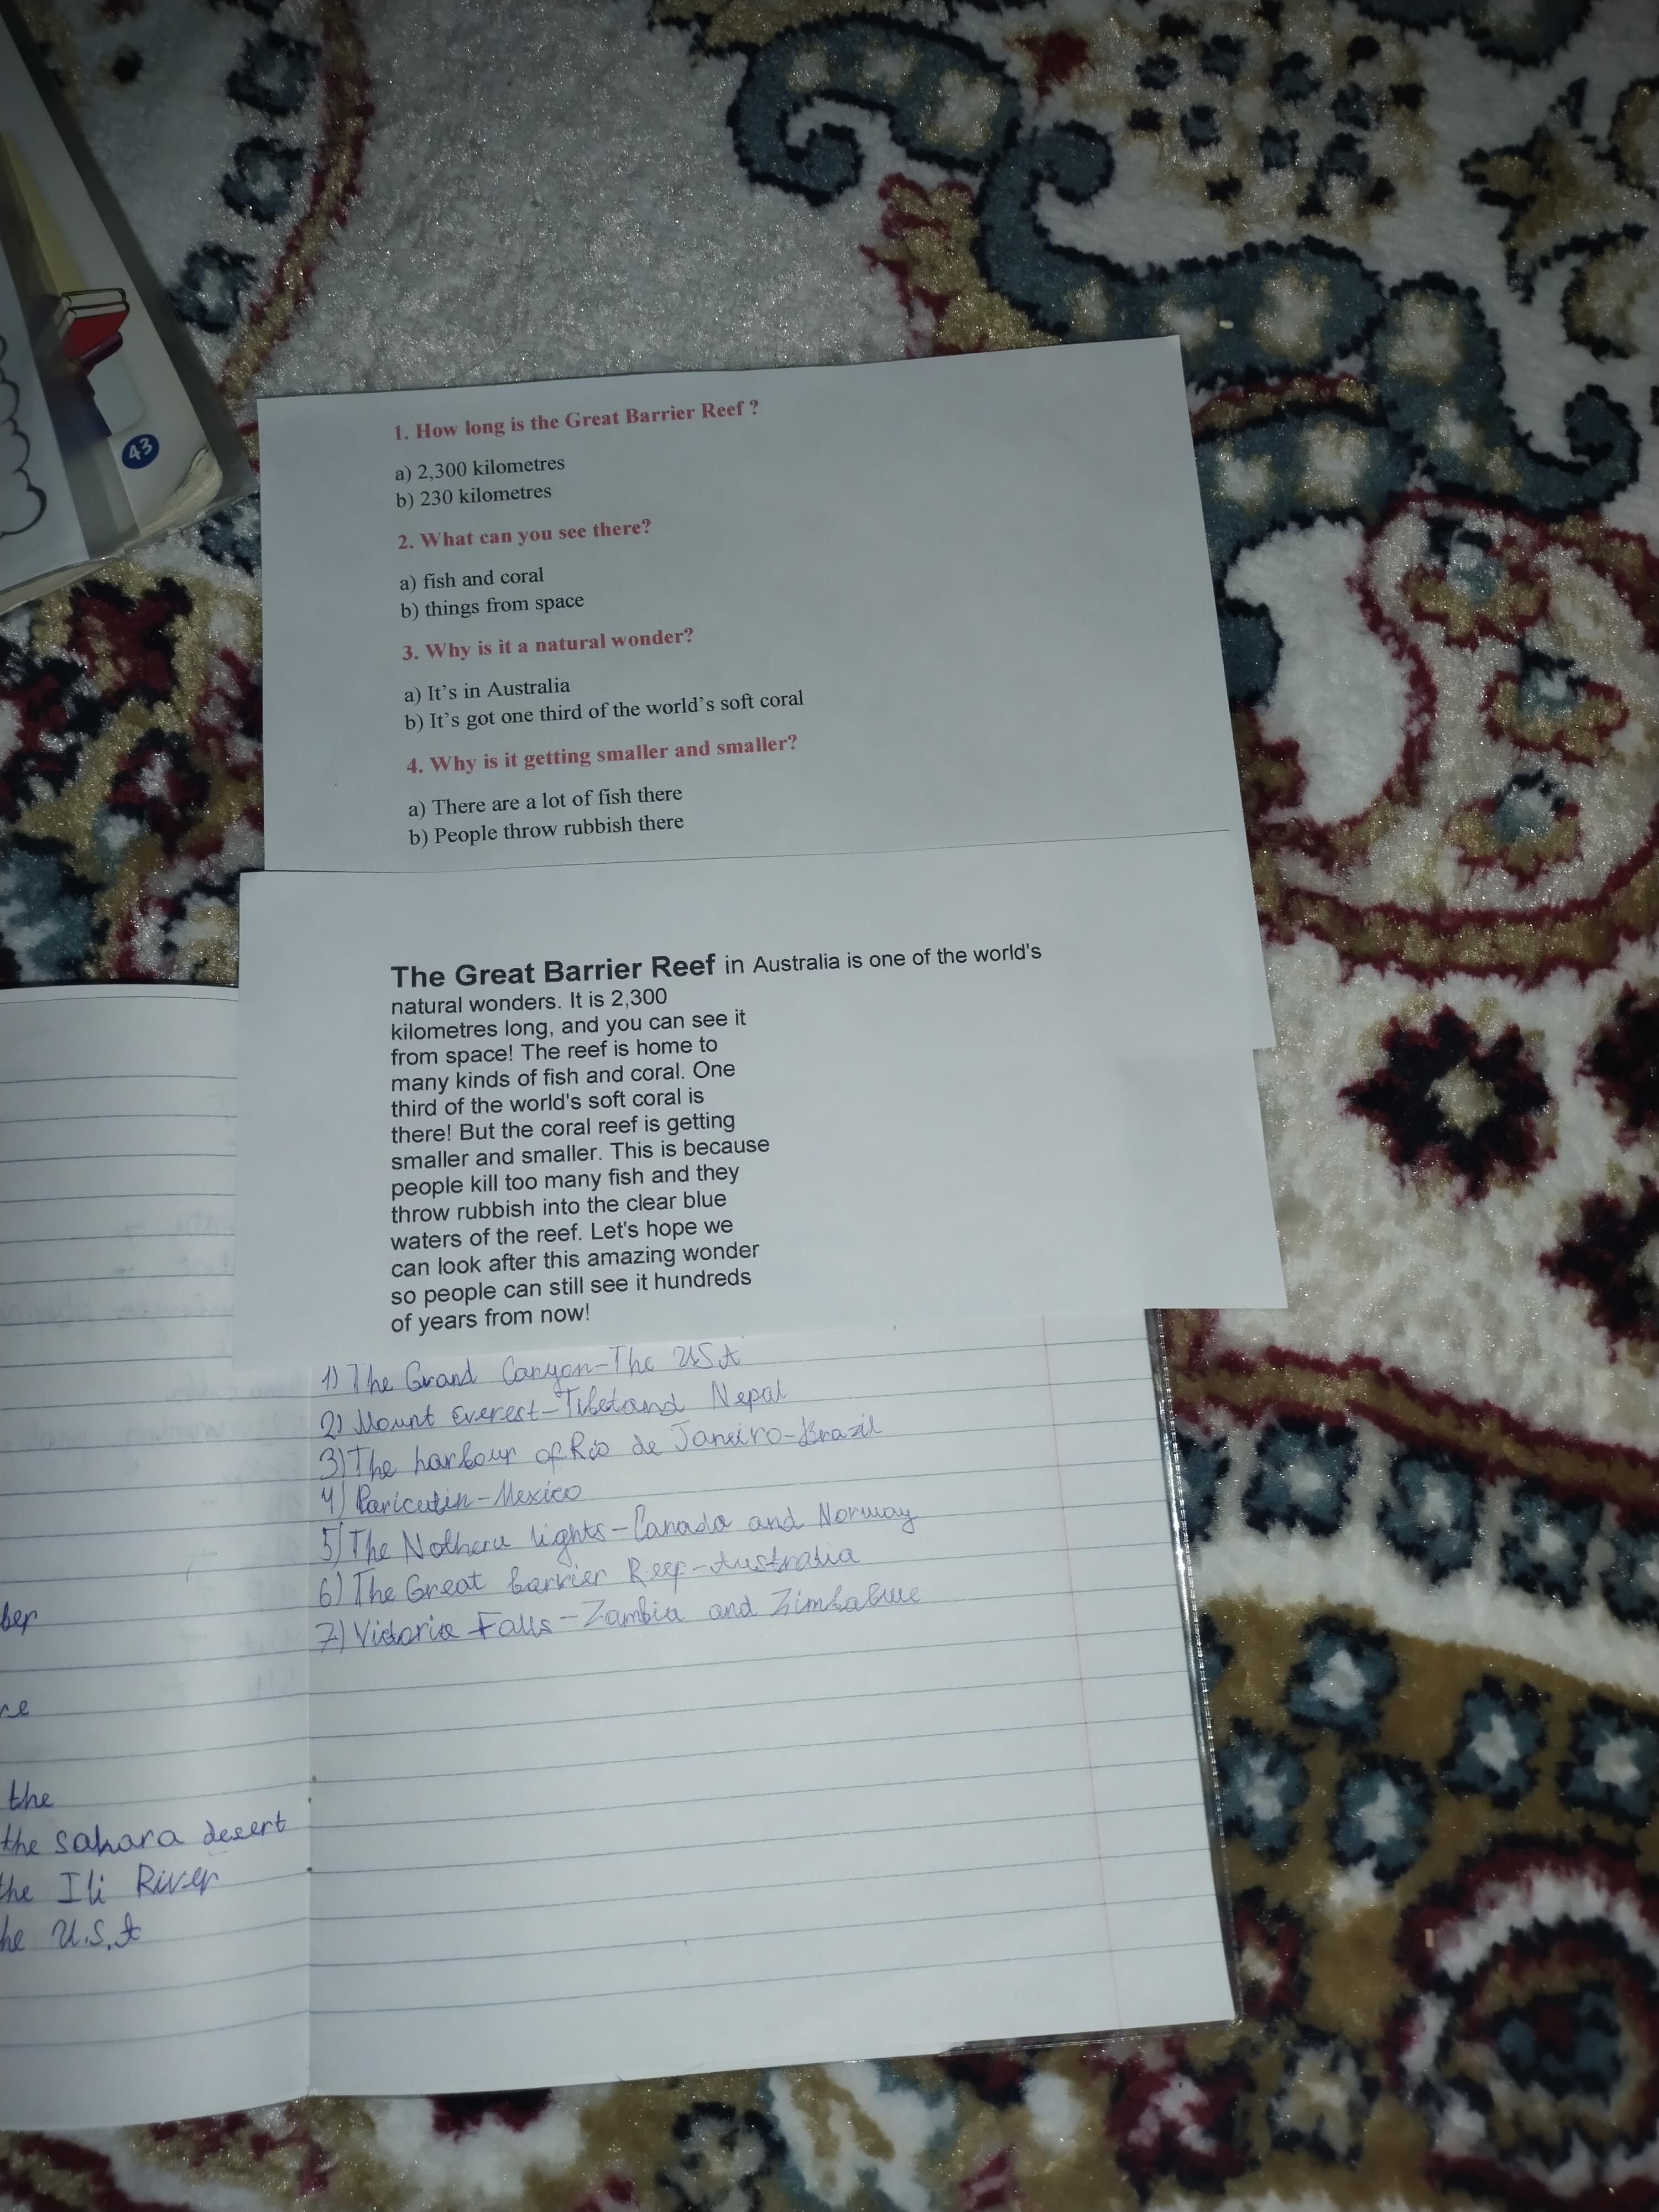 43
1. How long is the Great Barrier Reef ?
a) 2,300 kilometres
b) 230 kilometres
2. What can you see there?
a) fish and coral
b) things from space
3. Why is it a natural wonder?
a) It's in Australia
b) It's got one third of the world's soft coral
4. Why is it getting smaller and smaller?
a) There are a lot of fish there
b) People throw rubbish there
The Great Barrier Reef in Australia is one of the world's
natural wonders. It is 2,300
kilometres long, and you can see it
from space! The reef is home to
many kinds of fish and coral. One
third of the world's soft coral is
there! But the coral reef is getting
smaller and smaller. This is because
people kill too many fish and they
throw rubbish into the clear blue
waters of the reef. Let's hope we
can look after this amazing wonder
so people can still see it hundreds
of years from now!
1) The Grand Canyon-The USA
2) Mount Everest-Tibetand Nepal
3) The harbour of Rio de Janeiro-Brazil
4) Paricutin-Mexico
5) The Nothern lights-Canada and Norway
6) The Great barrier Reef-Australia
7) Victoria Falls-Zambia and Zimbabwe
ber
re
the
the sahara desert
the Ili River
he U.S.A